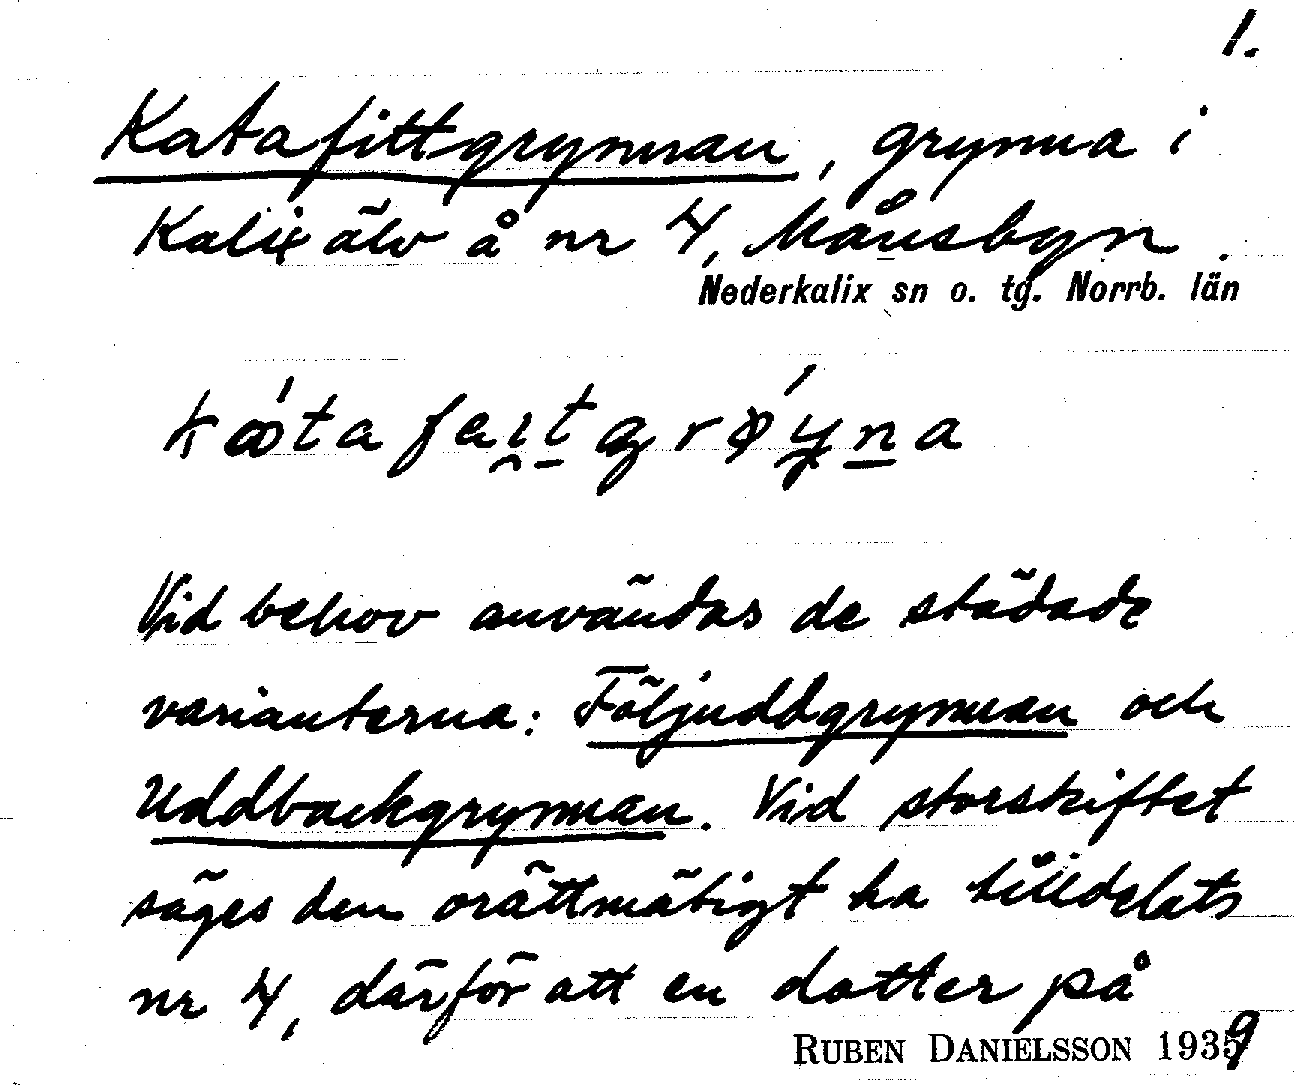 1.
Katafittgrynnan, grynna i
Kalix älv å nr 4, Månsbyn.
Nederkalix sn o. tg. Norrb. län
Vid behov användas de städade
varianterna: Följuddgrynnan och
Uddbackgrynnan. Vid storskiftet
säges den orättmätigt ha tilldelats
nr 4, därför att en dotter på
RUBEN DANIELSSON 1939